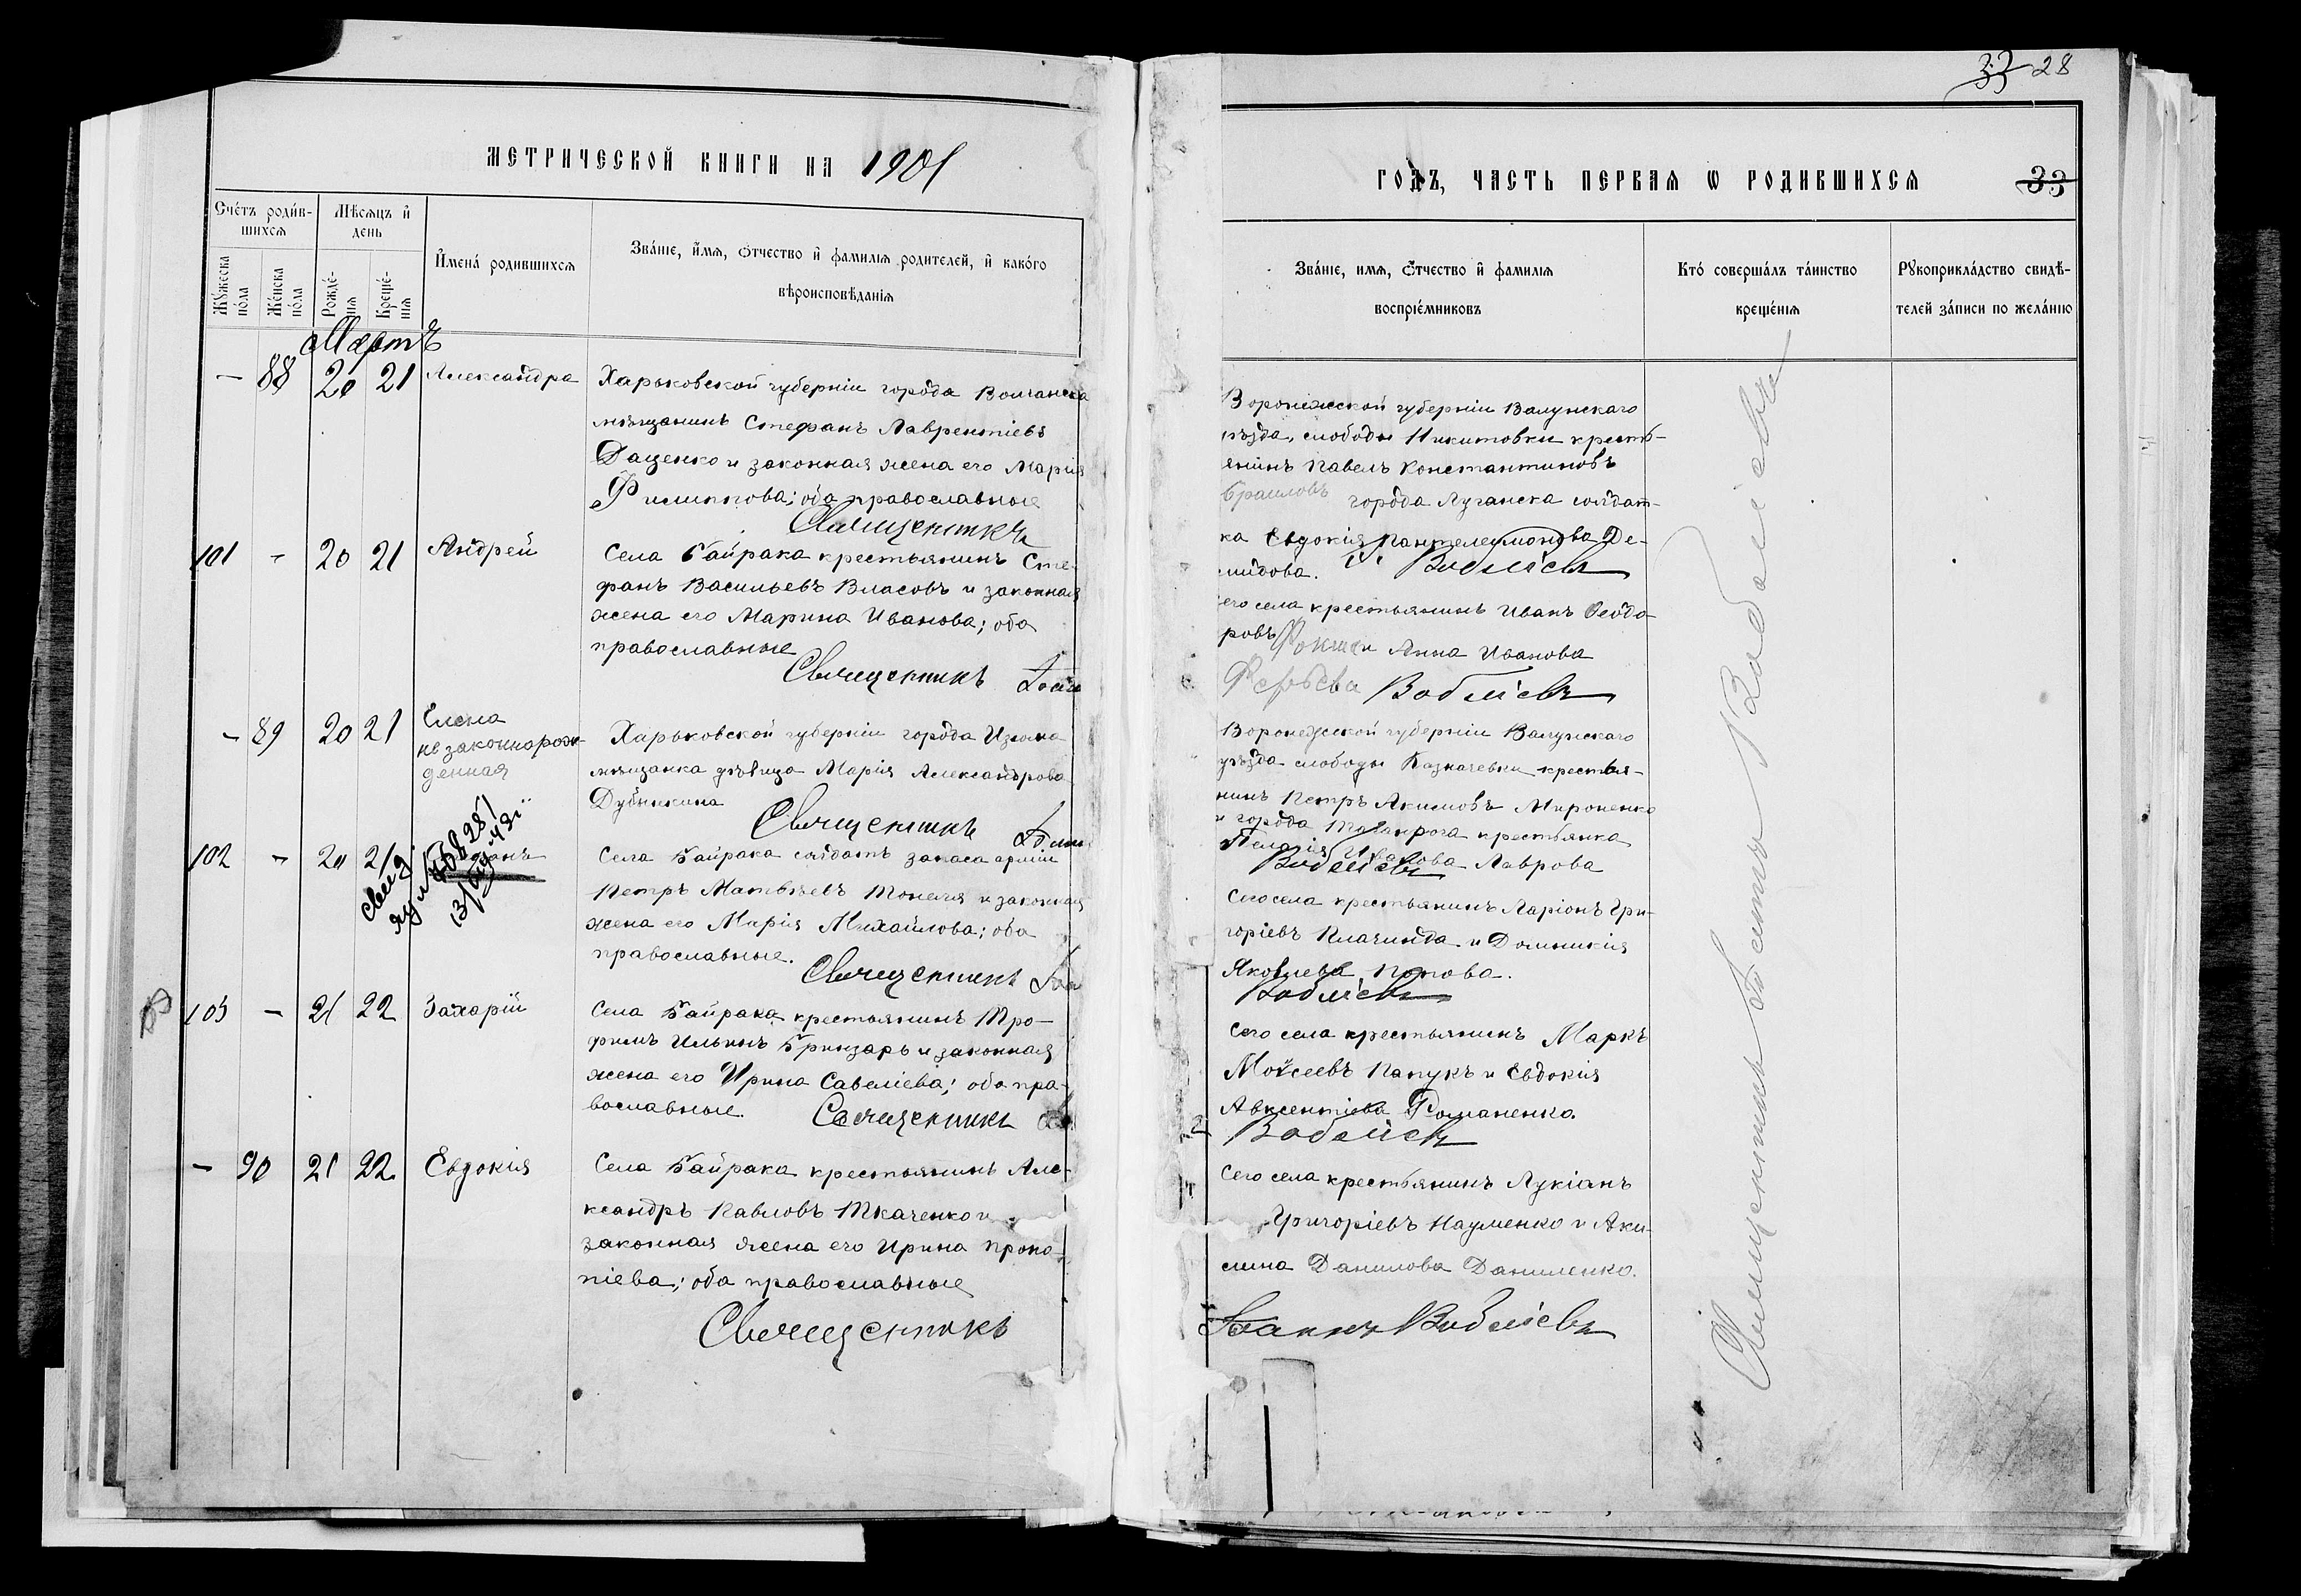 33 28
МЕТРИЧЕСКОЙ КНИГИ НА 1901
ГОДЪ, ЧАСТЬ ПЕРВАЯ Ѡ РОДИВШИХСЯ 33
Счетъ родив-
шихся
Мужеска пола
Женска пола
Мѣсяцъ и
день
Рожде-
нія
Креще-
нія
Имена родившихся
Званіе, имя, отчество и фамилія родителей, и какого
вѣроисповѣданія
Званіе, имя, отчество и фамилія
воспріемниковъ
Кто совершалъ таинство
крещенія
Рукоприкладство свидѣ-
телей записи по желанію
Мартъ
— 88 20 21 Александра
Харьковской губерніи города Волчанска
мѣщанинъ Стефанъ Лаврентіевъ
Даценко и законная жена его Марія
Филиппова; оба православные
Священникъ
Воронежской губерніи Валуйскаго
уѣзда, слободы Никитовки кресть-
янинъ Павелъ Константиновъ
Браиловъ города Луганска солдат-
ка Евдокія Пантелеимонова Де-
мидова. Воблiевъ
101 - 20 21 Андрей
Села Байрака крестьянинъ Сте-
фанъ Васильевъ Власовъ и законная
жена его Марина Иванова; оба
православные
Священникъ
его села крестьянинъ Иванъ Ѳеодо-
ровъ и Анна Иванова
Воблiевъ
- 89 20 21 Елена
незаконнорож-
денная
Харьковской губерніи города Изюма
мѣщанка дѣвица Марія Александрова
Священникъ
Воронежской губерніи Валуйскаго
уѣзда слободы Казначевки крестья-
нинъ Петръ Акимовъ Мироненко
и города Таганрога крестьянка
Пелагія Иванова Лаврова
Воблiевъ
102 - 20 21
Села Байрака солдатъ запаса арміи
Петръ Матвѣевъ Тонеля и законная
жена его Марія Михайлова; оба
православные.
Священникъ
Сего села крестьянинъ Ларіонъ Гри-
горіевъ Плачинда и Домникія
Яковлева Попова.
Воблiевъ
103 - 21 22 Захарій
Села Байрака крестьянинъ Тро-
фимъ Ильинъ Бринзарь и законная
жена его Ирина Савеліева; оба пра-
вославные. Священникъ
Сего села крестьянинъ Маркъ
Моисеевъ Папукъ и Евдокія
Авксентіева Романенко.
Воблiевъ
- 90 21 22 Евдокія
Села Байрака крестьянинъ Але-
ксандръ Павловъ Ткаченко и
законная жена его Ирина Проко-
піева; оба православные
Священникъ
Сего села крестьянинъ Лукіанъ
Григоріевъ Науменко и Аки-
лина Данилова Даниленко.
Іоаннъ Воблiевъ
Священникъ Іоаннъ Воблiевъ